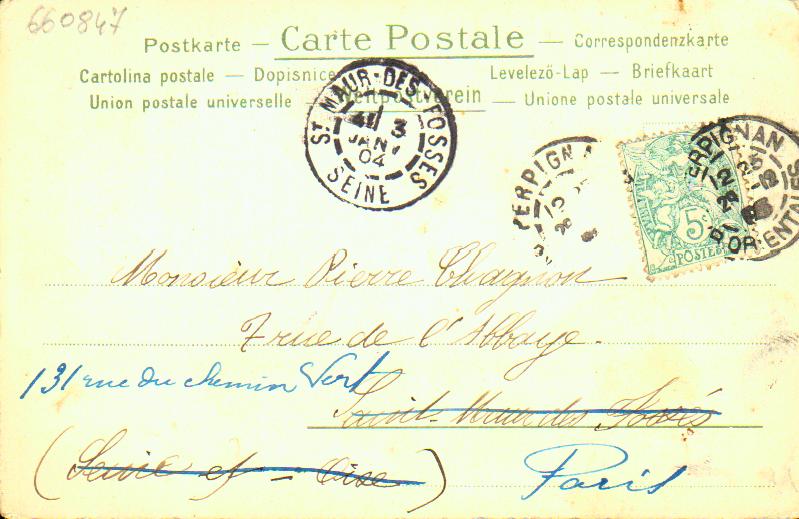 660847
Postkarte — Carte Postale — Correspondenzkarte
Cartolina postale — Dopisnice Levelező-Lap — Briefkaart
Union postale universelle — Weltpostverein — Unione postale universale
ST MAUR-DES-FOSSES
3
JANV
04
SEINE
PERPIGNAN
PERPIGNAN
5c
POSTES
P. ORIENTALES
Monsieur Pierre Chagnon
7 rue de l'Abbaye.
131 rue du chemin Vert
Saint-Maur des Fossés
(Seine et-Oise) Paris